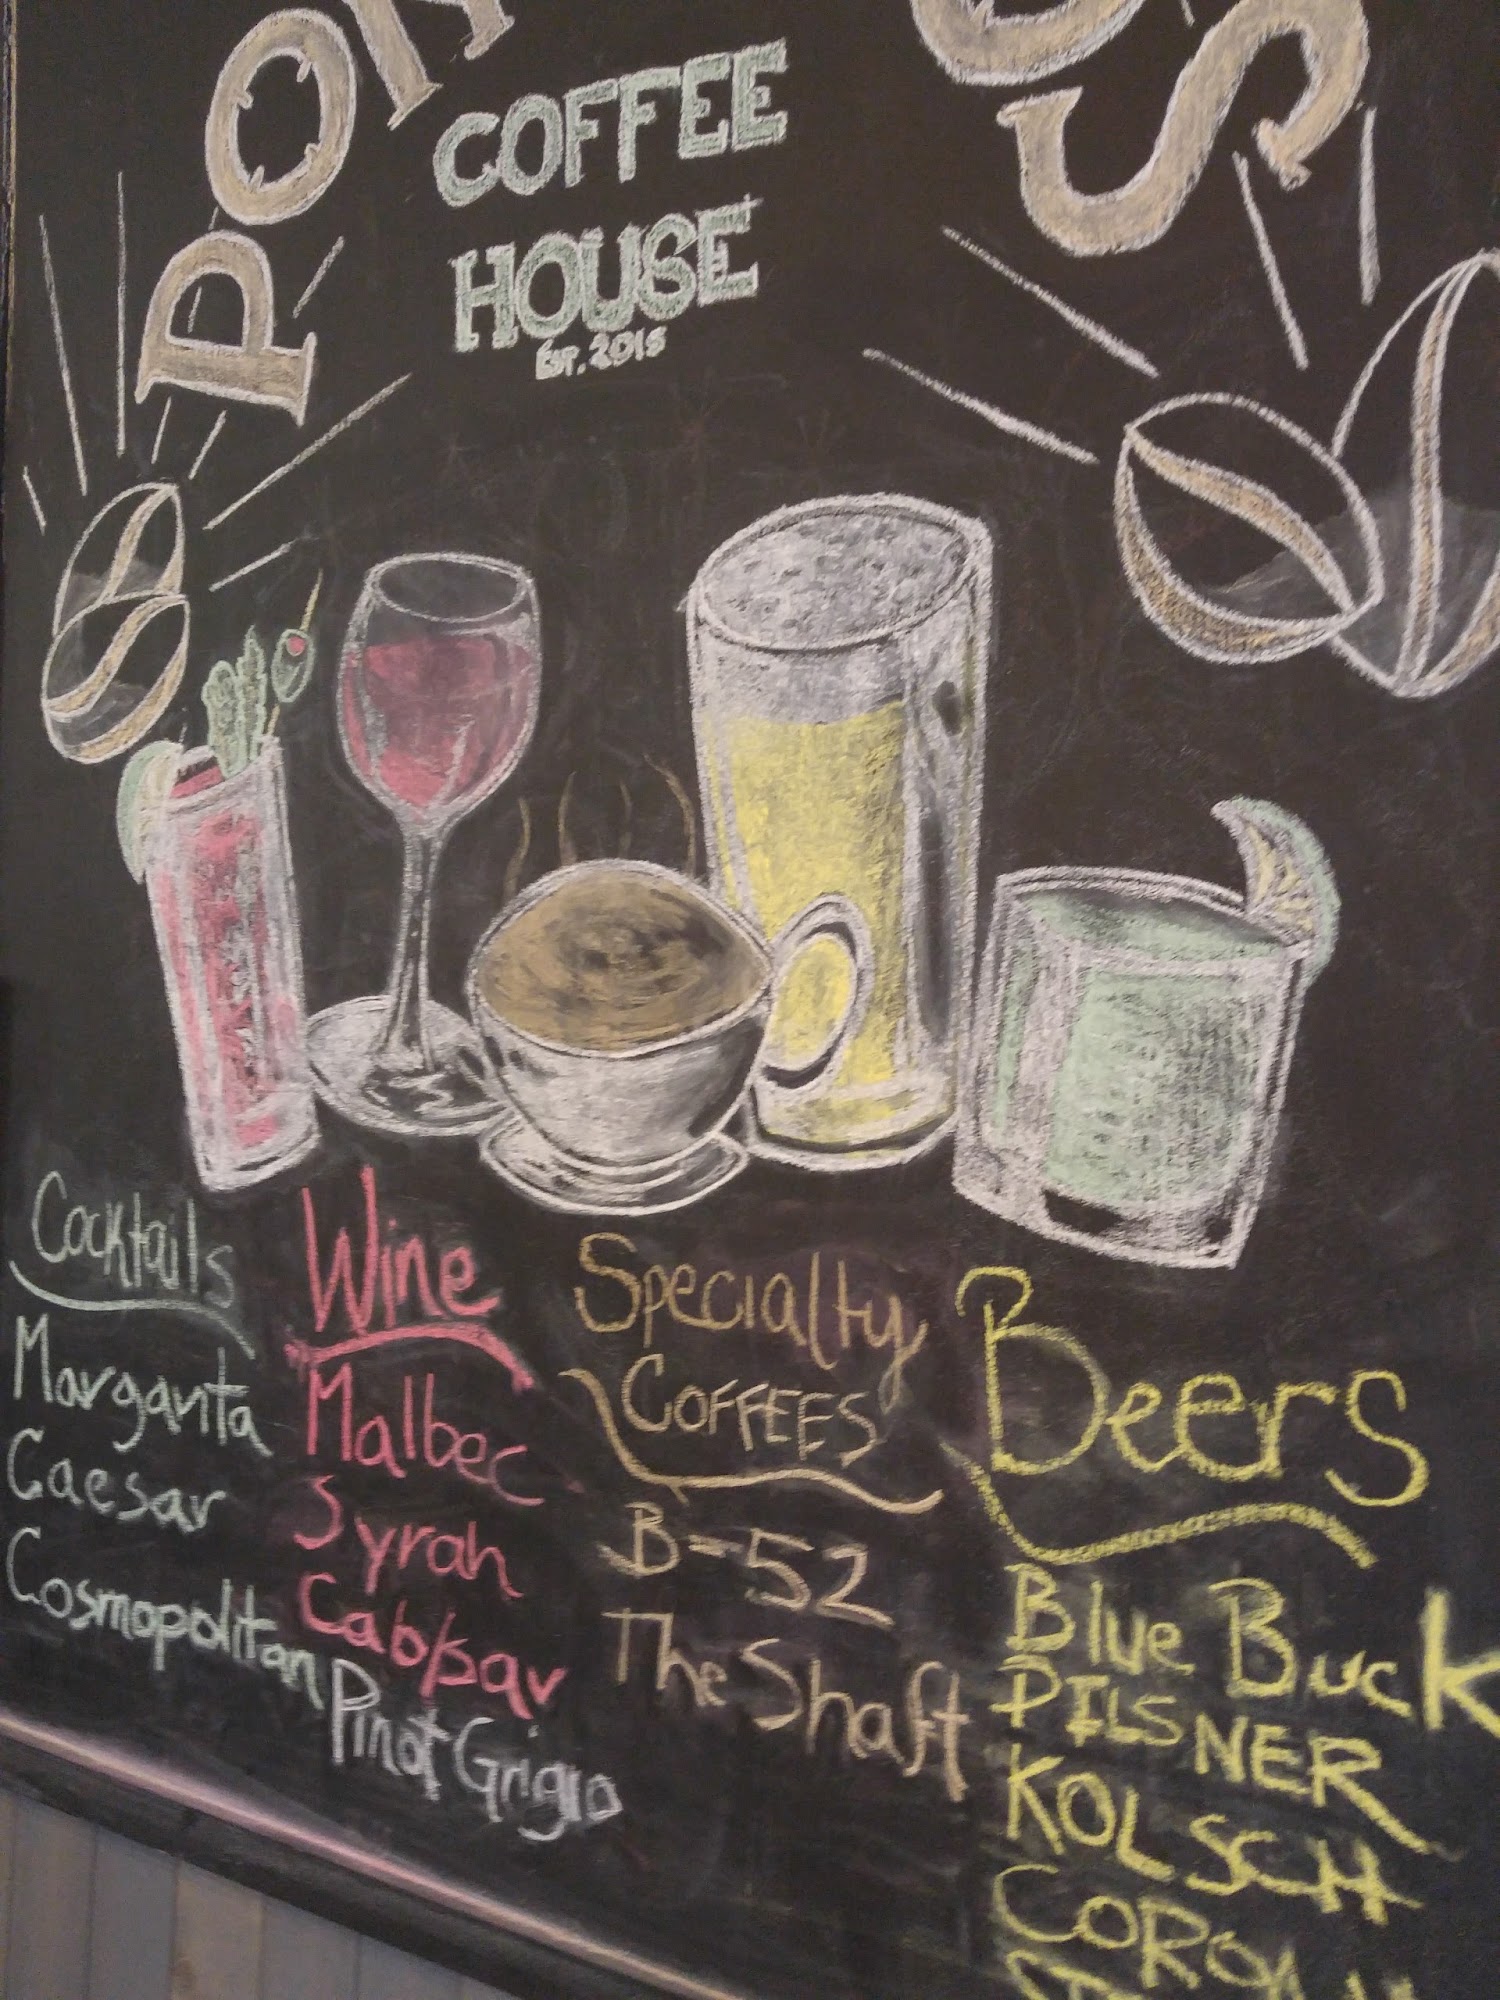 COFFEE
HOUSE
EST. 2015
Cocktails
Margarita
Caesar
Cosmopolitan
Wine
Malbec
Syrah
Cab/sav
Pinot Grigio
Specialty
COFFEES
B-52
The Shaft
Beers
Blue Buck
PILSNER
KOLSCH